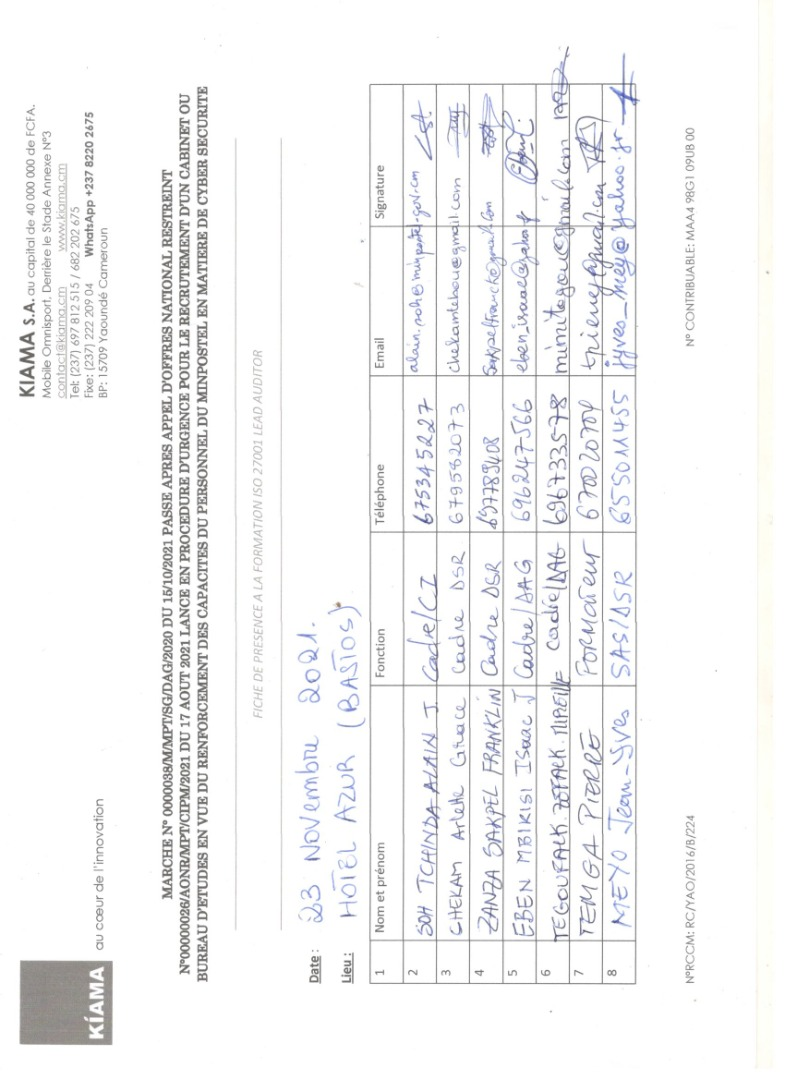 KIAMA
au cœur de l'innovation
KIAMA S.A. au capital de 40 000 000 de FCFA.
Mobile Omnisport, Derrière le Stade Annexe N°3
contact@kiama.cm www.kiama.cm
Tel: (237) 697 812 515 / 682 202 675
Fixe: (237) 222 209 04 WhatsApp +237 8220 2675
BP: 15709 Yaoundé Cameroun
MARCHE N° 0000038/M/MPT/SG/DAG/2020 DU 15/10/2021 PASSE APRES APPEL D'OFFRES NATIONAL RESTREINT
N°00000026/AONR/MPT/CIPM/2021 DU 17 AOUT 2021 LANCE EN PROCEDURE D'URGENCE POUR LE RECRUTEMENT D'UN CABINET OU
BUREAU D'ETUDES EN VUE DU RENFORCEMENT DES CAPACITES DU PERSONNEL DU MINPOSTEL EN MATIERE DE CYBER SECURITE
FICHE DE PRESENCE A LA FORMATION ISO 27001 LEAD AUDITOR
Date : 23 Novembre 2021.
Lieu : HOTEL AZUR (BASTOS)
1 Nom et prénom Fonction Téléphone Email Signature
2 SOH TCHINDA ALAIN J. Cadre/CI 675345227 alain.soh@minpostel.gov.cm
3 CHEKAM Arlette Grace Cadre DSR 679582073 chekamlebou@gmail.com
4 ZANZA SAKPEL FRANKLIN Cadre DSR 697789408
5 EBEN MBIKISI Isaac J Cadre/DAG 696247566
6 TEGOUFACK ZOFACK MIREILLE cadre/DAG 696733578 mimitegou@gmail.com
7 TEMGA PIERRE FORMATEUR 670020704
8 MEYO Jean-Yves SAS/DSR 655011455 jyves_mey@yahoo.fr
N°RCCM: RC/YAO/2016/B/224 N° CONTRIBUABLE: MAA4 98G1 09UB 00